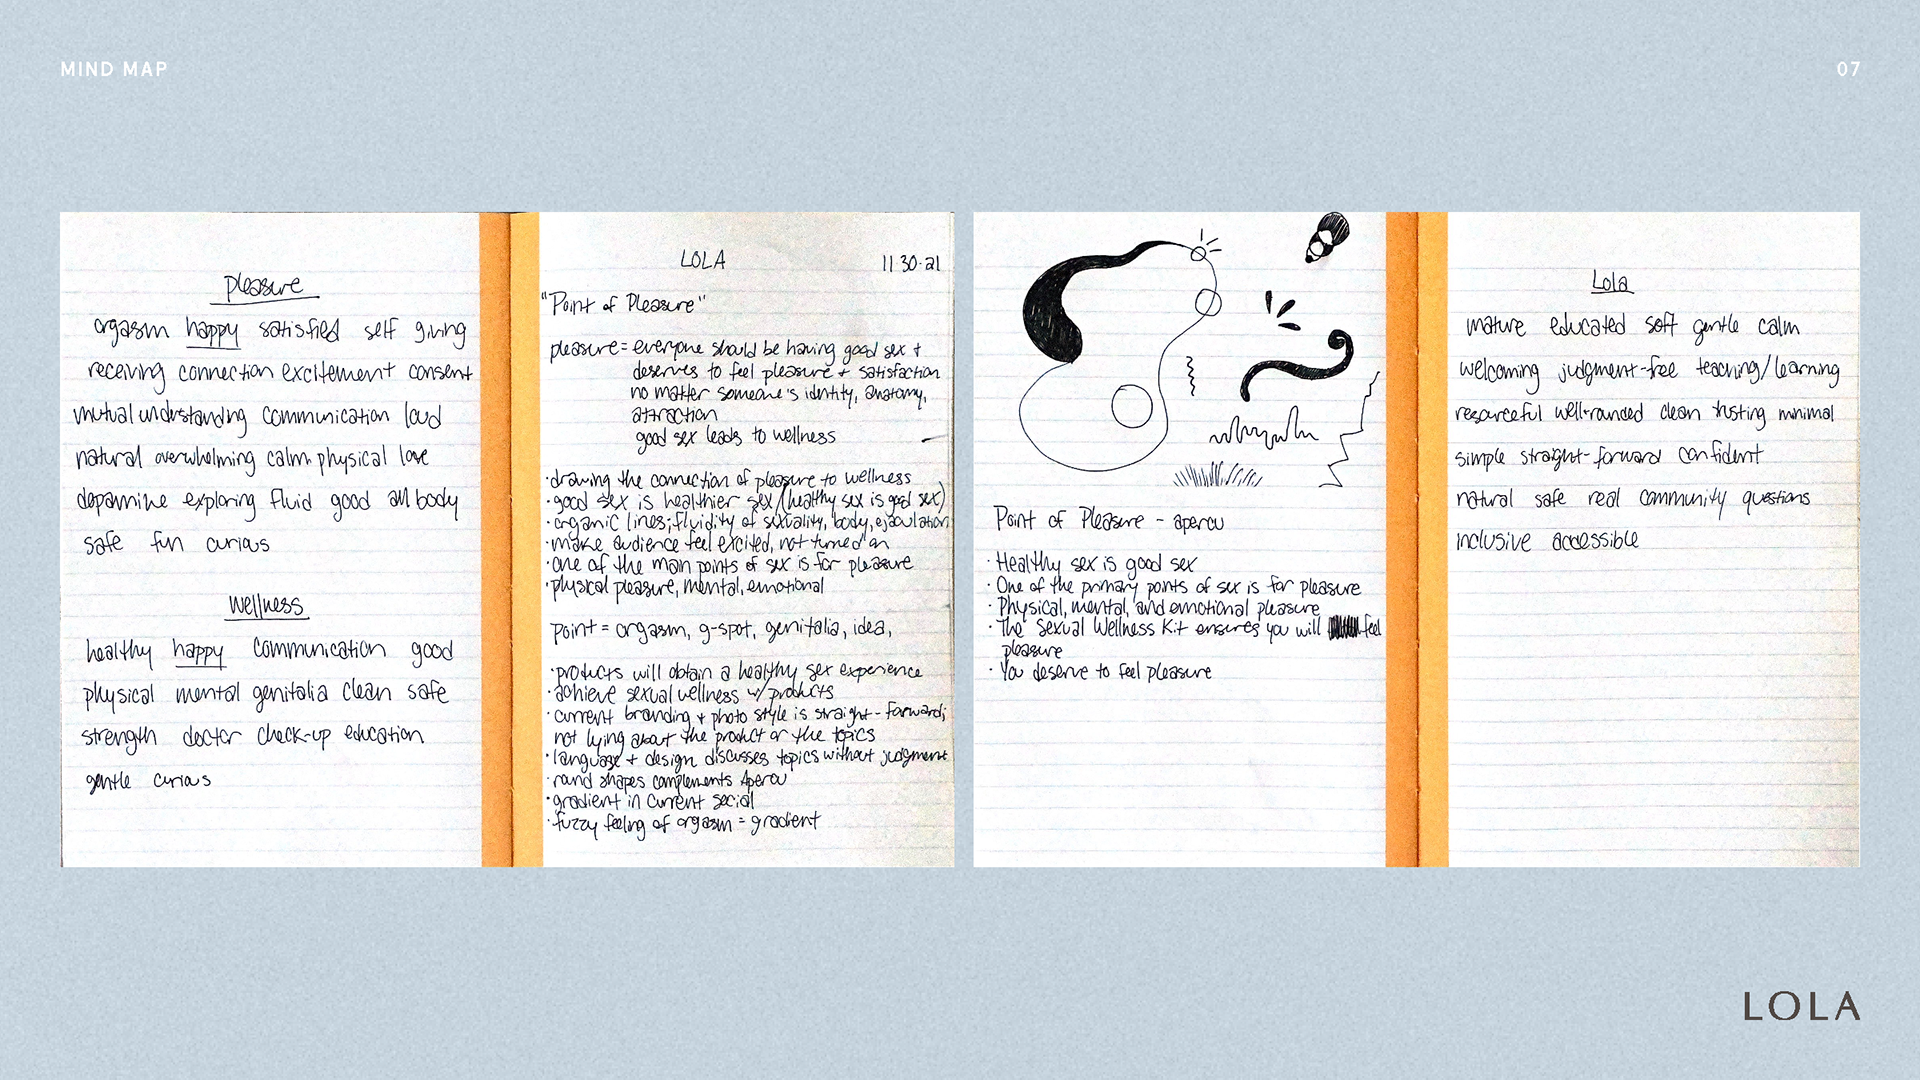 MIND MAP
07
pleasure
orgasm happy satisfied self giving
receiving connection excitement consent
mutual understanding communication loud
natural overwhelming calm physical love
dopamine exploring fluid good all body
safe fun curious
wellness
healthy happy communication good
physical mental genitalia clean safe
strength doctor check-up education
gentle curious
LOLA 11 30·21
"Point of Pleasure"
pleasure = everyone should be having good sex +
deserves to feel pleasure + satisfaction
no matter someone's identity, anatomy,
attraction
good sex leads to wellness
·drawing the connection of pleasure to wellness
·good sex is healthier sex/(healthy sex is good sex)
·organic lines; fluidity of sexuality, body, ejaculation
·make audience feel excited, not turned on
·one of the main points of sex is for pleasure
·physical pleasure, mental, emotional
point = orgasm, g-spot, genitalia, idea,
·products will obtain a healthy sex experience
·achieve sexual wellness w/ products
·current branding + photo style is straight-forward;
not lying about the product or the topics
·language + design discusses topics without judgment
·round shapes complements Aperçu
·gradient in current social
·fuzzy feeling of orgasm = gradient
Point of Pleasure - aperçu
· Healthy sex is good sex
· One of the primary points of sex is for pleasure
· Physical, mental, and emotional pleasure
· The Sexual Wellness Kit ensures you will feel
pleasure
· You deserve to feel pleasure
Lola
mature educated soft gentle calm
welcoming judgment-free teaching/learning
resourceful well-rounded clean trusting minimal
simple straight-forward confident
natural safe real community questions
inclusive accessible
LOLA